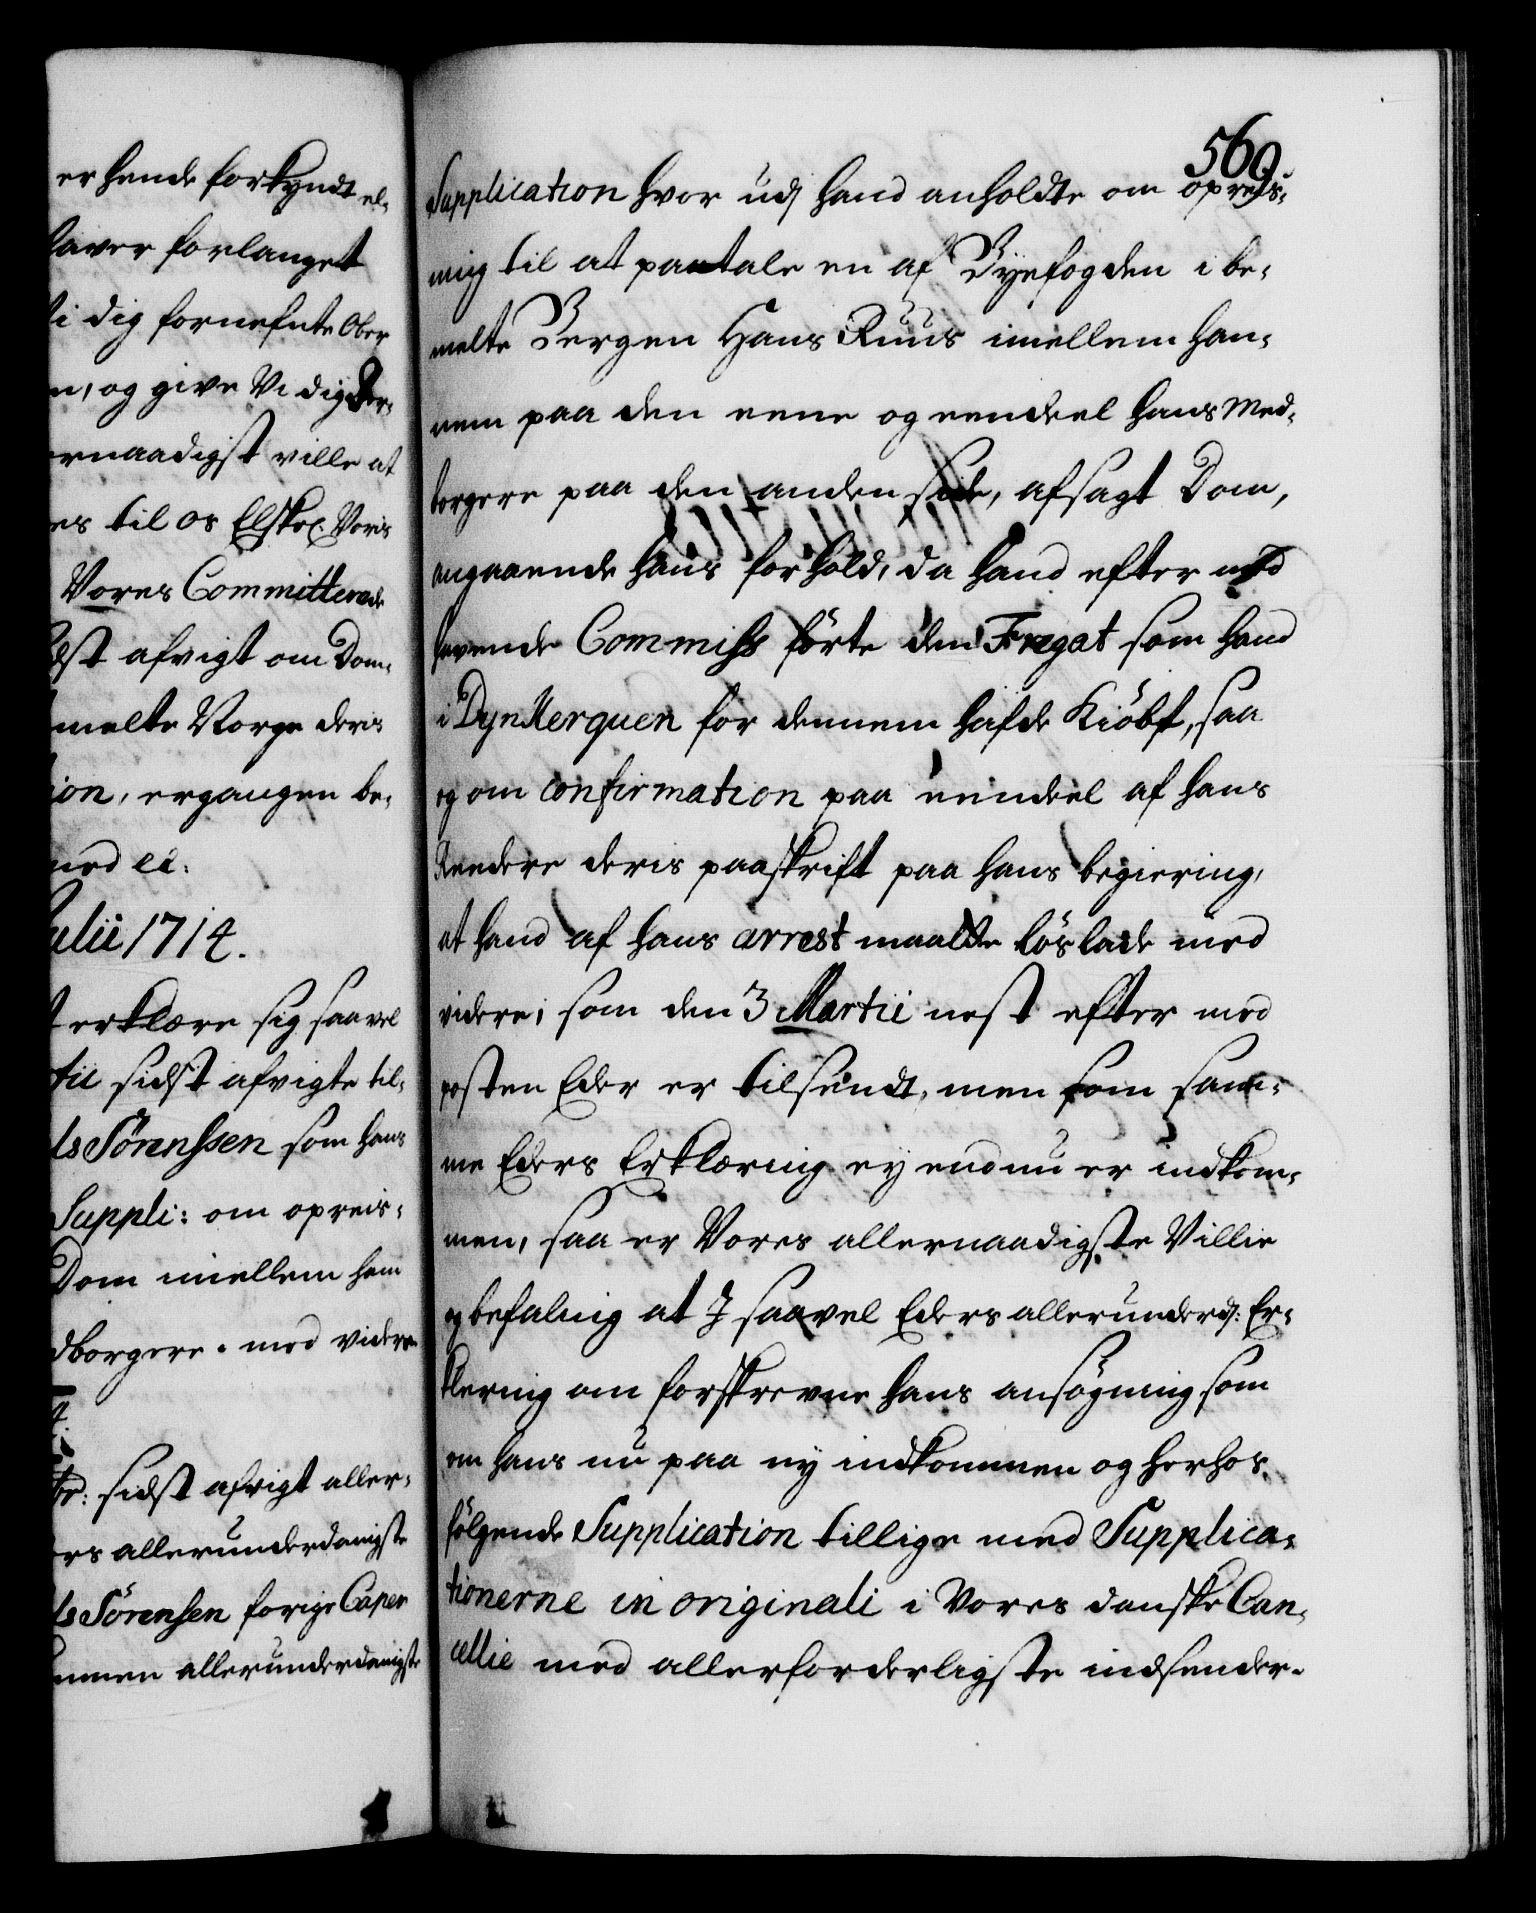 er hende forkyndt el-
haver forlanget
i dig fornefnte Ober
n, og give Vi dig der-
ernaadigst ville at
es til os Elskel. Voris
Vores Committerede
idst afvigt om Dom-
melte Norge deris
ion, ergangen be-
med etc:
ulii 1714.
erklære sig saavel
tii sidst afvigte til-
ls Sørenssen som hans
Suppli: om opreis-
Dom imellem ham
dborgere. med videre
4.
br: sidst afvigt aller-
ers allerunderdanigste
ls Sörensen forige Caper
mmen allerunderdanigste
569.
Supplication hvor udj hand anholdte om opreis-
ning til at paatale en af Byefogden i be-
melte Bergen Hans Ruus imellem han-
nem paa den eene og eendeel hans Med-
borgere paa den anden side, afsagt Dom,
angaaende hans forhold, da hand efter med
havende Commiss förte den Fregat som hand
i Dynkerquen for dennem hafde Kiöbt, saa
og om confirmation paa eendeel af hans
Reedere deris paaskrift paa hans begiering,
at hand af hans arrest maatte löslade med
videre; som den 3 Martii nest efter med
posten Eder er tilsendt, men som sam-
me Eders Erklæring ey endnu er indkom-
men, saa er Vores allernaadigste Villie
og befaling at I saavel Eders allerunderd: Er-
klering om forskrevne hans ansögning som
om hans nu paa ny indkommen og herhos
fölgende Supplication tillige med Supplica-
tionerne in originali i Vores danske Can-
cellie med allerforderligste indsender.